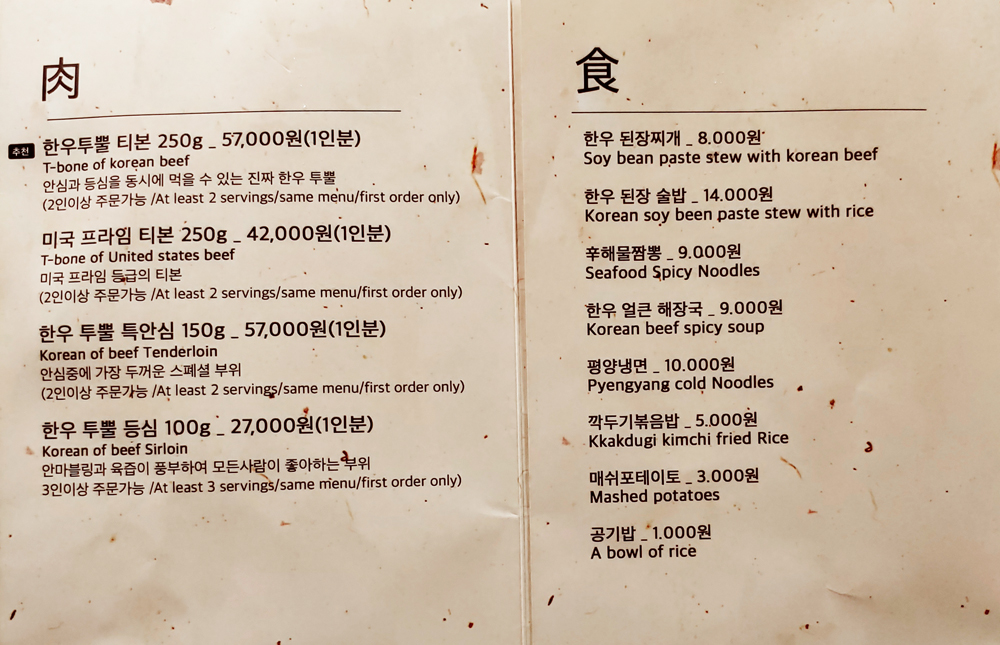 肉
추천
한우투뿔 티본 250g _ 57,000원(1인분)
T-bone of korean beef
안심과 등심을 동시에 먹을 수 있는 진짜 한우 투뿔
(2인이상 주문가능 /At least 2 servings/same menu/first order only)
미국 프라임 티본 250g _ 42,000원(1인분)
T-bone of United states beef
미국 프라임 등급의 티본
(2인이상 주문가능 /At least 2 servings/same menu/first order only)
한우 투뿔 특안심 150g _ 57,000원(1인분)
Korean of beef Tenderloin
안심중에 가장 두꺼운 스폐셜 부위
(2인이상 주문가능 /At least 2 servings/same menu/first order only)
한우 투뿔 등심 100g _ 27,000원(1인분)
Korean of beef Sirloin
안마블링과 육즙이 풍부하여 모든사람이 좋아하는 부위
3인이상 주문가능 /At least 3 servings/same menu/first order only)
食
한우 된장찌개 _ 8.000원
Soy bean paste stew with korean beef
한우 된장 술밥 _ 14.000원
Korean soy been paste stew with rice
辛해물짬뽕 _ 9.000원
Seafood Spicy Noodles
한우 얼큰 해장국 _ 9.000원
Korean beef spicy soup
평양냉면 _ 10.000원
Pyengyang cold Noodles
깍두기볶음밥 _ 5.000원
Kkakdugi kimchi fried Rice
매쉬포테이토 _ 3.000원
Mashed potatoes
공기밥 _ 1.000원
A bowl of rice